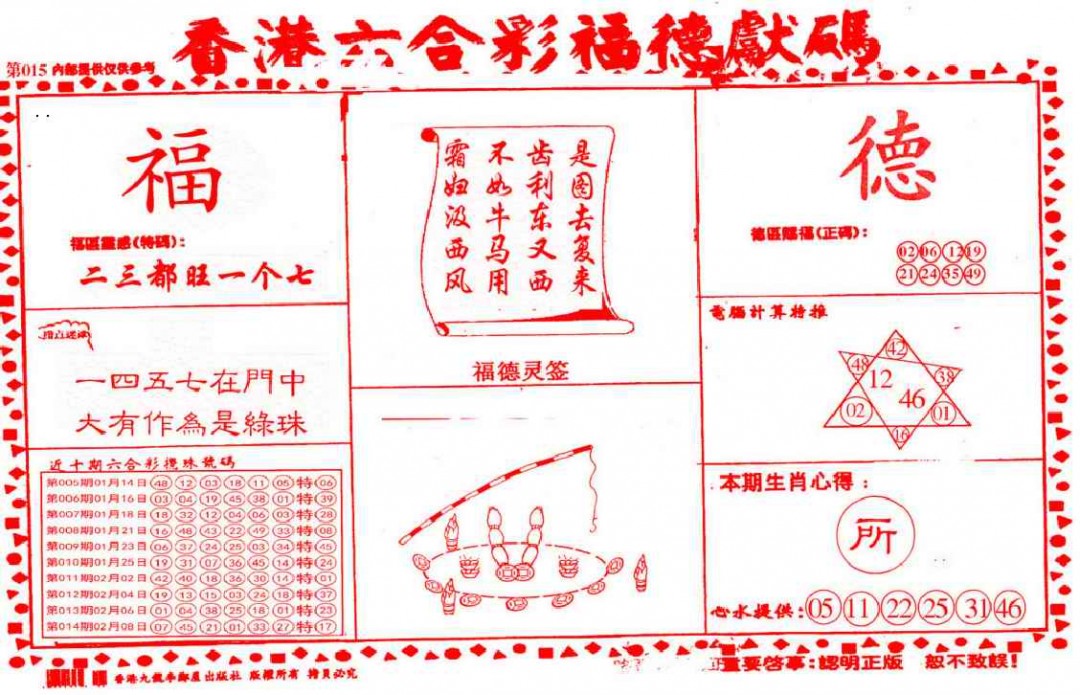 香港六合彩福德獻碼
第015 內部提供仅供参考
福
福區靈感(特碼):
二三都旺一个七
指点迷津
一四五七在門中
大有作為是綠珠
近十期六合彩攪珠號碼
第005期01月14日 48 12 03 18 11 05 特 06
第006期01月16日 03 04 19 45 38 01 特 39
第007期01月18日 18 32 12 04 06 03 特 28
第008期01月21日 16 48 43 22 49 33 特 08
第009期01月23日 06 37 24 25 03 34 特 45
第010期01月25日 19 31 07 36 45 14 特 24
第011期02月02日 42 40 18 36 30 14 特 01
第012期02月04日 19 13 15 03 24 18 特 37
第013期02月06日 01 04 38 25 18 01 特 23
第014期02月08日 07 45 21 01 33 27 特 17
是图去复来
齿利东又西
不如牛马用
霜妇汲西风
福德灵签
德
德區賜福(正碼):
02 06 12 19
21 24 35 49
電腦計算特推
42
48 12 38
46
02 01
16
本期生肖心得:
所
心水提供: 05 11 22 25 31 46
香港九龍 出版社 版權所有 拷貝必究
重要啓事:認明正版 恕不致誤!